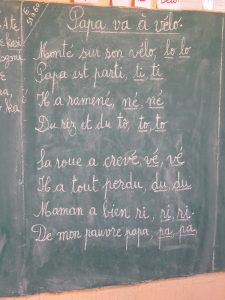 Papa va à vélo.
Monté sur son vélo, lo lo
Papa est parti, ti ti
Il a ramené, né, né
Du riz et du to, to, to
La roue a crevé, vé, vé
Il a tout perdu, du du
Maman a bien ri, ri, ri.
De mon pauvre papa, pa, pa,